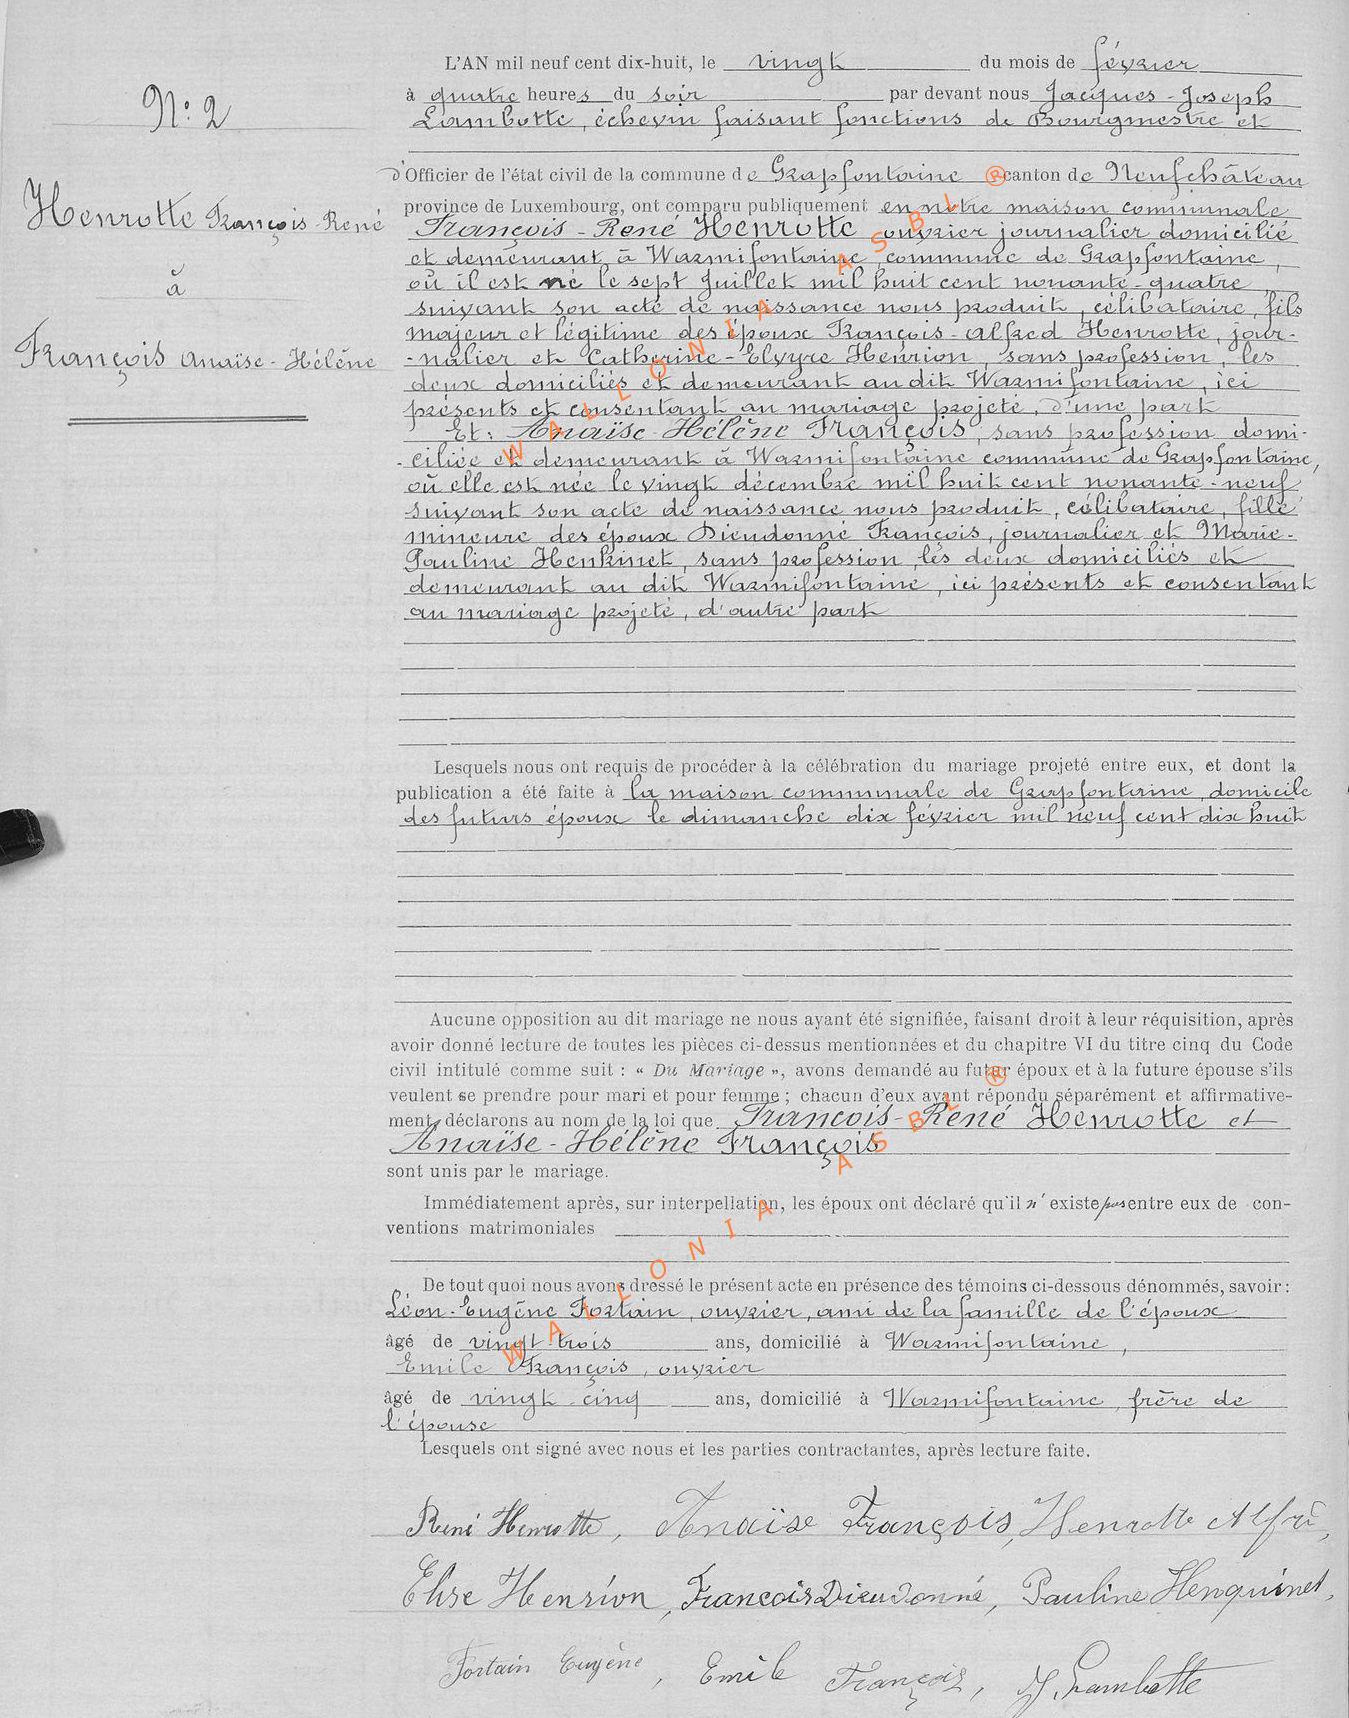 N° 2
Henrotte François-René
à
François Anaïse-Hélène
L'AN mil neuf cent dix-huit, le vingt du mois de février
à quatre heures du soir par devant nous Jacques-Joseph
Lambotte, échevin faisant fonctions de Bourgmestre et
d'Officier de l'état civil de la commune de Grapfontaine canton de Neufchâteau
province de Luxembourg, ont comparu publiquement en notre maison communale
François-René Henrotte ouvrier journalier domicilié
et demeurant à Warmifontaine, commune de Grapfontaine,
où il est né le sept Juillet mil huit cent nonante-quatre,
suivant son acte de naissance nous produit, célibataire, fils
majeur et légitime des époux François-Alfred Henrotte, jour-
-nalier et Catherine-Elvyre Henrion, sans profession, les
deux domiciliés et demeurant au dit Warmifontaine, ici
présents et consentant au mariage projeté, d'une part
Et: Anaïse-Hélène François, sans profession domi-
-ciliée et demeurant à Warmifontaine commune de Grapfontaine,
où elle est née le vingt décembre mil huit cent nonante-neuf
suivant son acte de naissance nous produit, célibataire, fille
mineure des époux Dieudonné François, journalier et Marie-
Pauline Henkinet, sans profession, les deux domiciliés et
demeurant au dit Warmifontaine, ici présents et consentant
au mariage projeté, d'autre part
Lesquels nous ont requis de procéder à la célébration du mariage projeté entre eux, et dont la
publication a été faite à la maison communale de Grapfontaine, domicile
des futurs époux le dimanche dix février mil neuf cent dix huit
Aucune opposition au dit mariage ne nous ayant été signifiée, faisant droit à leur réquisition, après
avoir donné lecture de toutes les pièces ci-dessus mentionnées et du chapitre VI du titre cinq du Code
civil intitulé comme suit : « Du Mariage », avons demandé au futur époux et à la future épouse s'ils
veulent se prendre pour mari et pour femme ; chacun d'eux ayant répondu séparément et affirmative-
ment, déclarons au nom de la loi que François-René Henrotte et
Anaïse-Hélène François
sont unis par le mariage.
Immédiatement après, sur interpellation, les époux ont déclaré qu'il n'existe pas entre eux de con-
ventions matrimoniales
De tout quoi nous avons dressé le présent acte en présence des témoins ci-dessous dénommés, savoir :
Léon-Eugène Fortain, ouvrier, ami de la famille de l'époux
âgé de vingt-trois ans, domicilié à Warmifontaine,
Emile François, ouvrier
âgé de vingt-cinq ans, domicilié à Warmifontaine, frère de
l'épouse
Lesquels ont signé avec nous et les parties contractantes, après lecture faite.
René Henrotte, Anaïse François, Henrotte Alfré,
Elise Henrion, François Dieudonné, Pauline Henquinet,
Fortain Eugène, Emile François, JJ. Lambotte
WALLONIA ASBL ®
WALLONIA ASBL ®